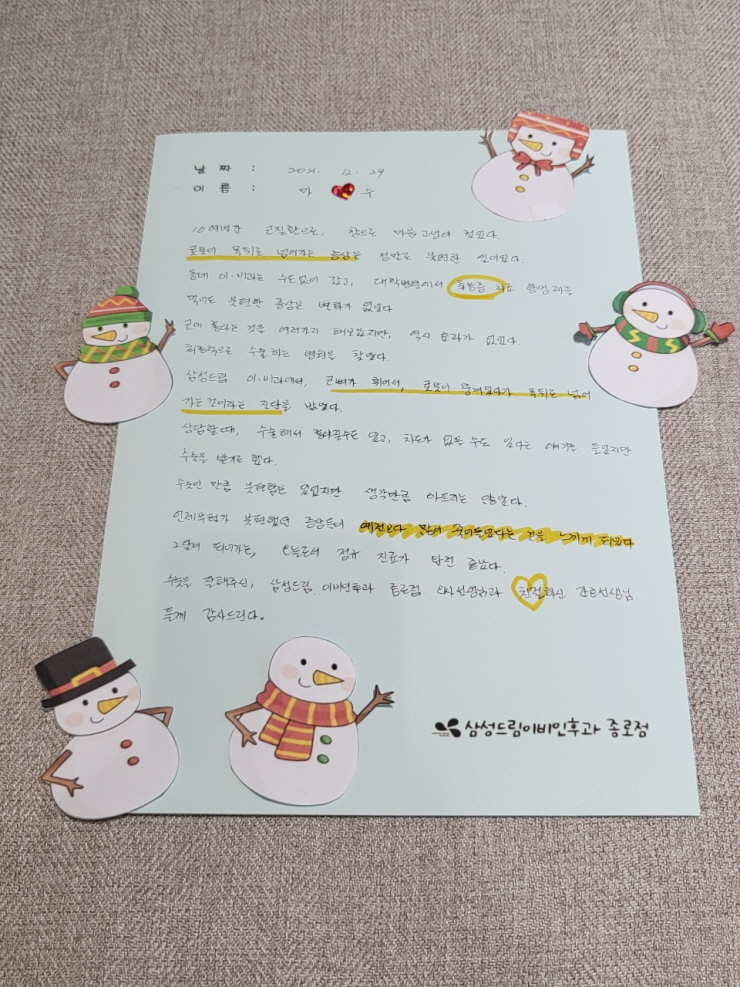 날 짜 : 2021. 12. 29
이 름 : 마 수
10여년간 코질환으로, 참으로 마음 고생이 컸었다.
콧물이 목뒤로 넘어가는 증상은 정말로 불편한 일이었다.
동네 이·비과는 수도없이 갔고, 대학병원에서 축농증 치료 항생제를
먹어도 불편한 증상은 변화가 없었다
코에 좋다는 것을 여러가지 해보았지만, 역시 효과가 없었다.
최종적으로 수술하는 병원을 찾았다.
삼성드림 이·비과에서, 코뼈가 휘어서, 콧물이 목뒤로 넘어
가는 것이라는 진단을 받았다.
상담할때, 수술해서 좋아질수도 있고, 차도가 없을 수도 있다는 얘기를 들었지만
수술을 받기로 했다.
수술인 만큼 불편함은 있었지만 생각만큼 아프지는 않았다.
언제부터가 불편했던 증상들이 예전보다 많이 줄어들었다는 것을 느끼게 되었다
2달이 되어가는, 오늘로서 정규 진료가 완전 끝났다.
수술을 잘해주신, 삼성드림 이비인후과 종로점 의사선생님과 친절하신 간호선생님
들께 감사드린다.
삼성드림이비인후과 종로점